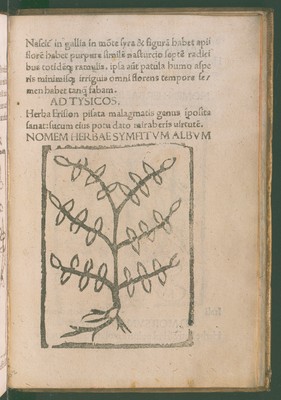 Nascit̄ in gallia in mōte syra & figurā habet apii
florē habet purpurā similē nasturcio septē radici
bus totidēq; ramulis. ipsa aūt patula humo aspe
ris minimisq; irriguis omni florens tempore se
men habet tanq̄ fabam.
AD TYSICOS.
Herba Erision pisata malagmatis genus īposita
sanat succum eius potu dato miraberis uirtutē.
NOMEM HERBAE SYMFITVM ALBVM